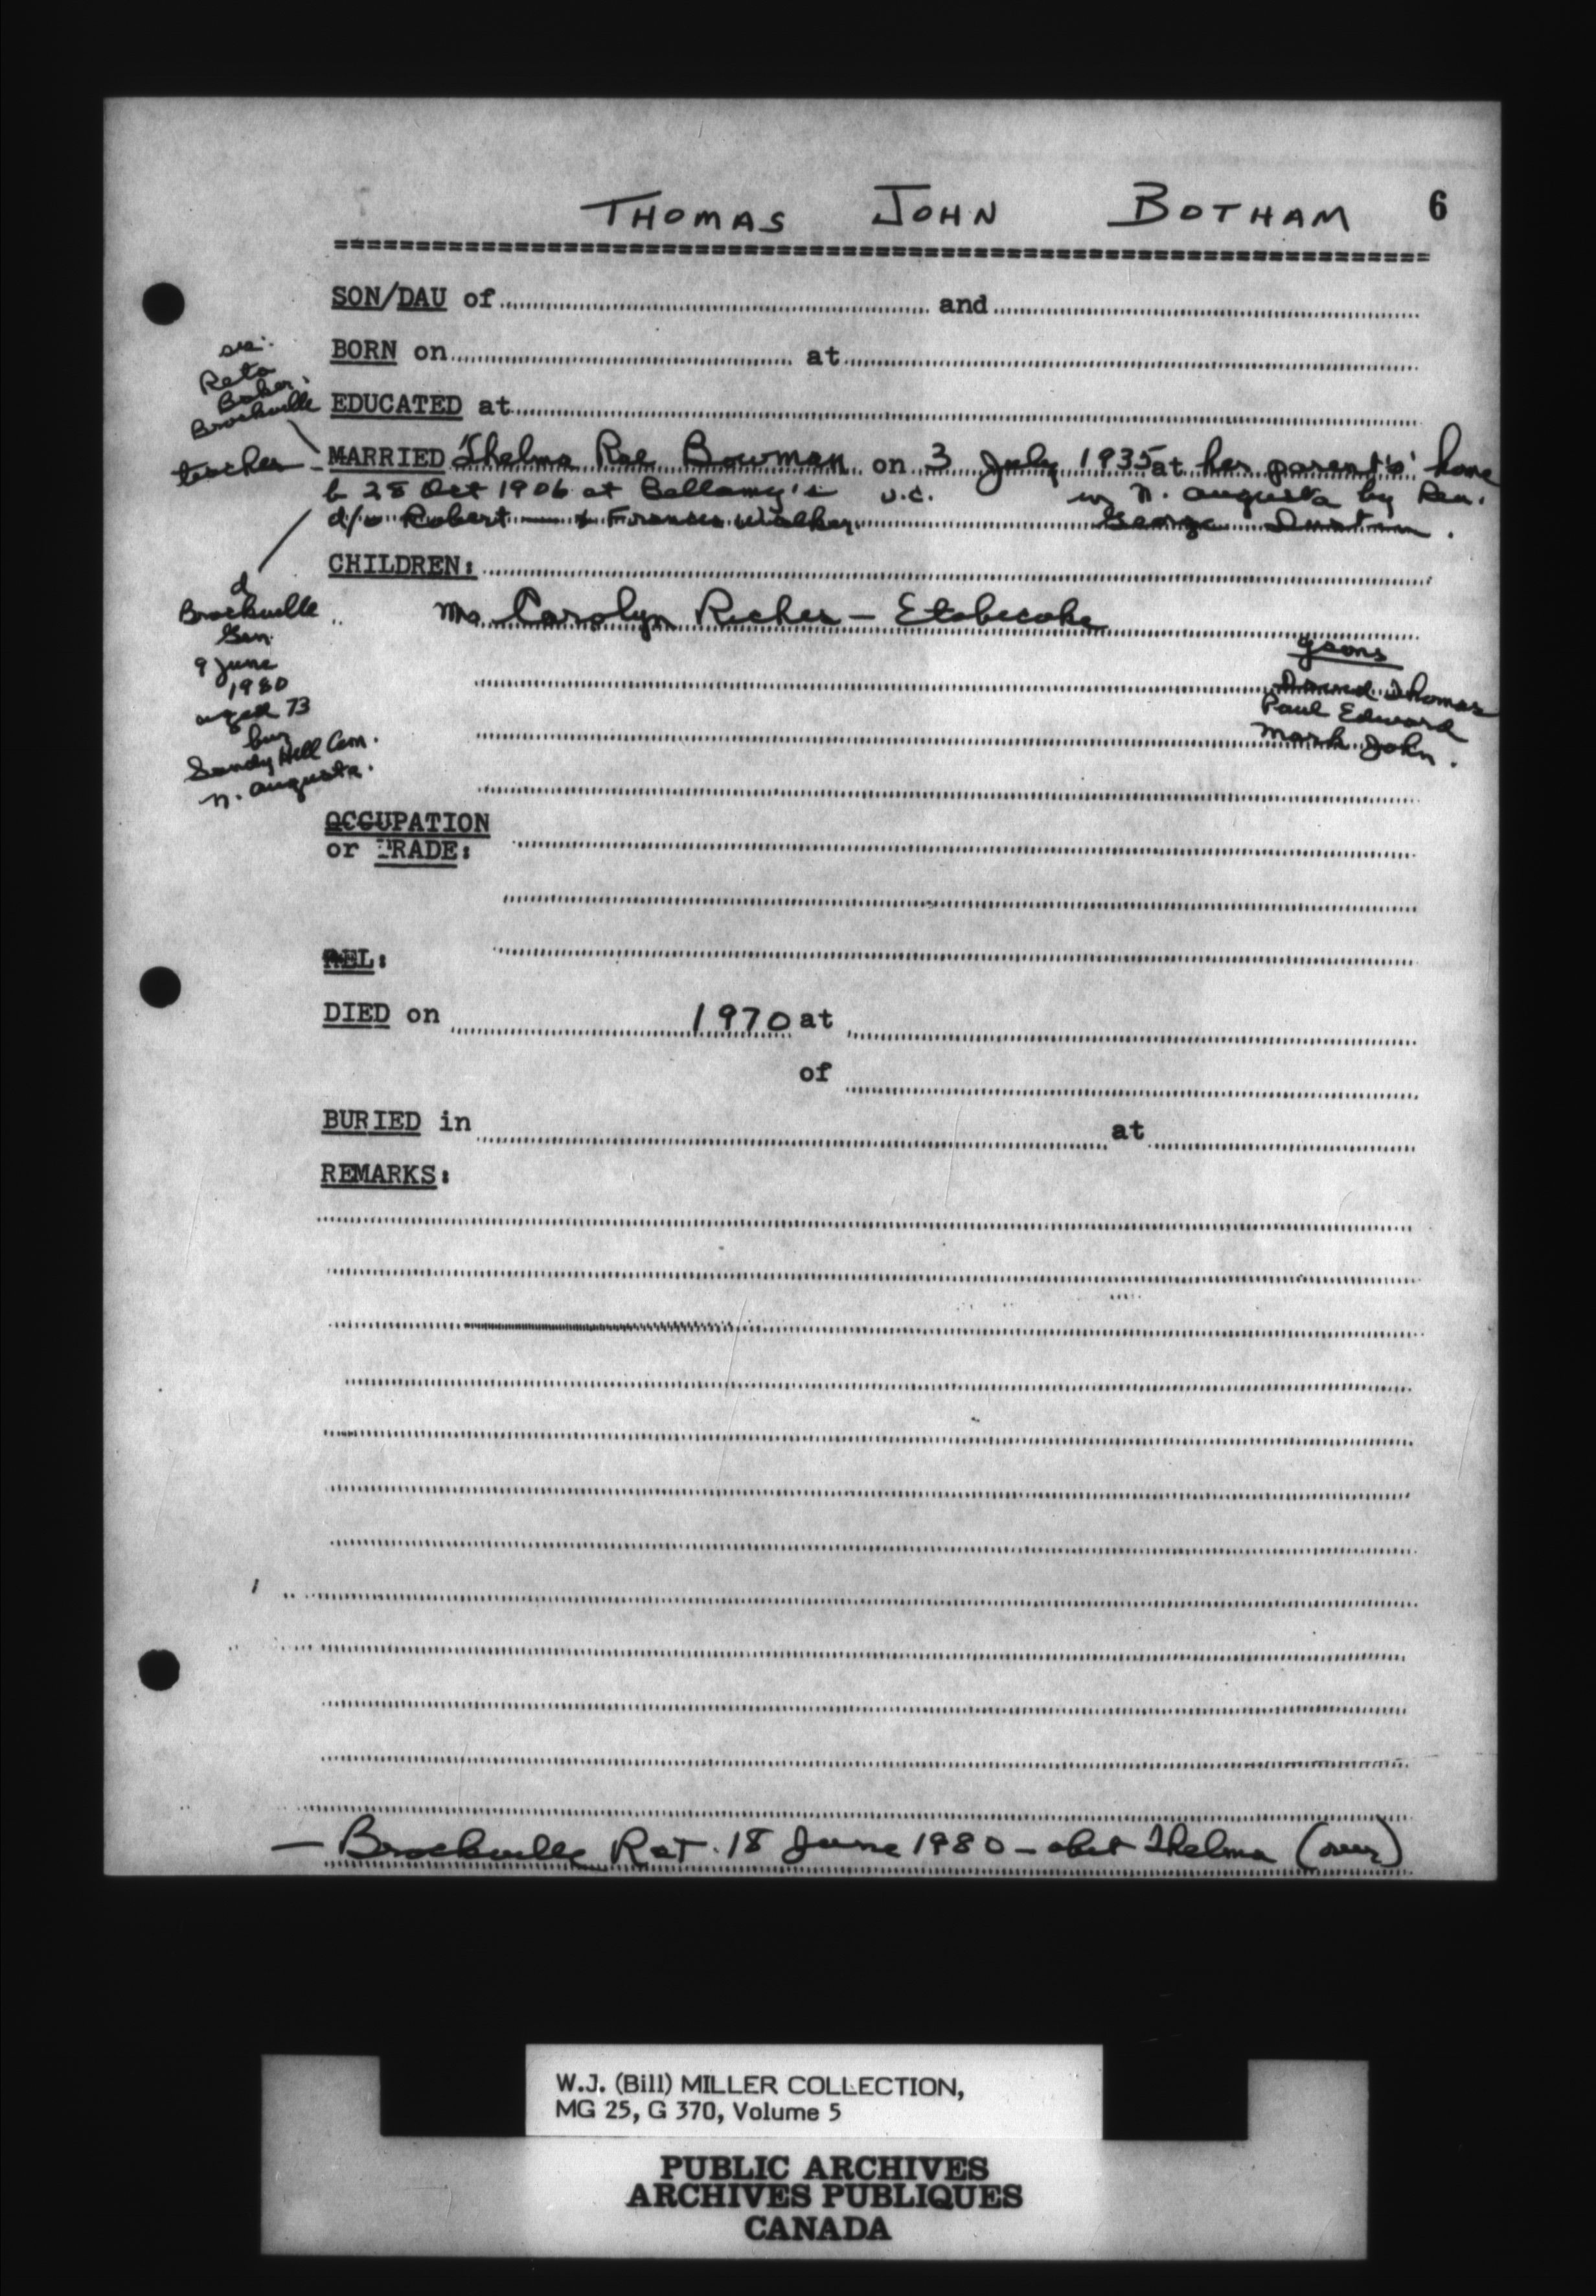 THOMAS JOHN BOTHAM 6
SON/DAU of and
BORN on at
sis:
Reta
Baker.
Brockville
EDUCATED at
teacher - MARRIED Thelma Rae Bowman on 3 July 1935 at her parent's' home
b 28 Oct 1906 at Bellamy's U.C. in N. Augusta by Rev.
d/o Robert & Frances Walker George
CHILDREN:
d
Brockville
Gen
9 June
1980
aged 73
bur
Sandy Hill Cem.
N. Augusta.
Mrs Carolyn Richer - Etobicoke
gsons
David Thomas
Paul Edward
Mark John.
OCCUPATION
or TRADE:
REL:
DIED on 1970 at
of
BURIED in at
REMARKS:
- Brockville R&T. 18 June 1980 - obit Thelma (over)
W.J. (Bill) MILLER COLLECTION,
MG 25, G 370, Volume 5
PUBLIC ARCHIVES
ARCHIVES PUBLIQUES
CANADA